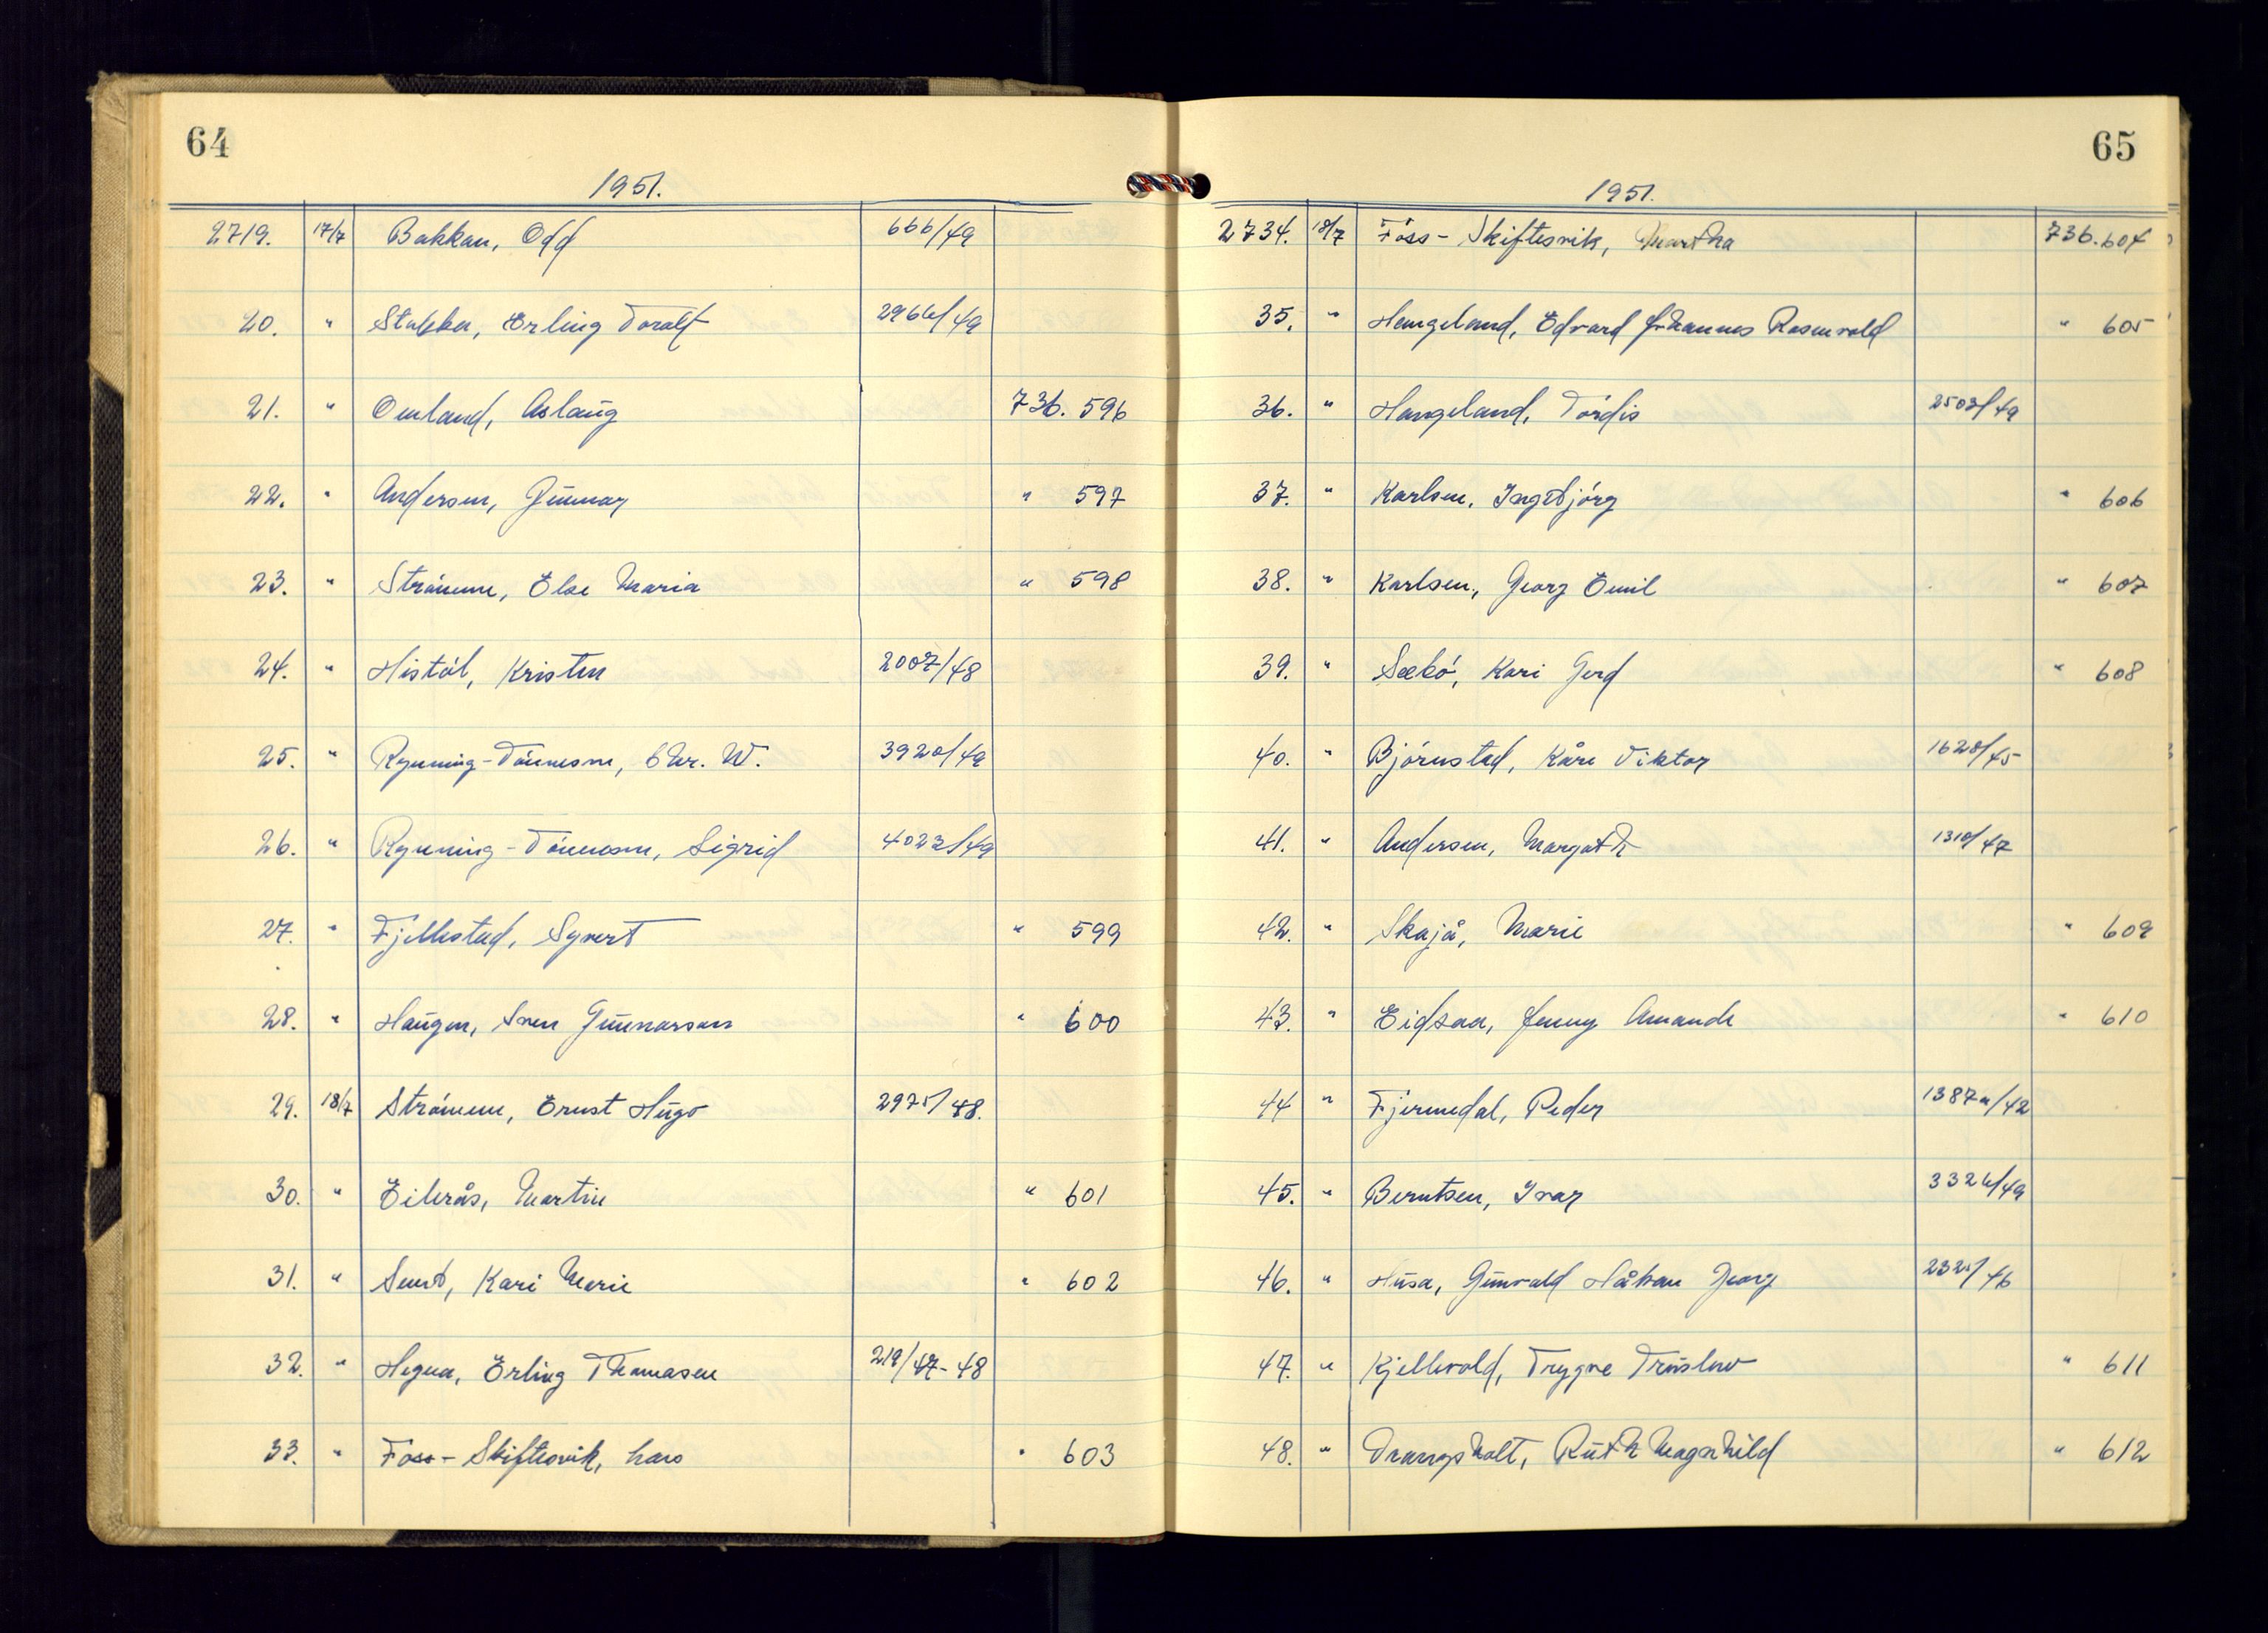 64
1951.
2719. 17/7 Bakkan, Odd 666/49
20. " Stubbe, Erling Toralf 2966/49
21. " Omland, Aslaug 736. 596
22. " Andersen, Gunnar " 597
23. " Strömme, Else Maria " 598
24. " Histöl, Kristen 2007/48
25. " Ryuning-Tönnesen, Chr. W. 3920/49
26. " Ryuning-Tönnesen, Sigrid 4023/49
27. " Fjellestad, Syvert " 599
28. " Haugen, Sven Gunnarson " 600
29. 18/7 Strömme, Ernst Hugo 2975/48.
30. " Eikrås, Martin " 601
31. " Kari Marie " 602
32. " Hegna, Erling Thomasen 219/47-48
33. " Foss-Skiftesvik, Lars " 603
65
1951.
2734. 18/7 Foss-Skiftesvik, Martha 736.604
35. " Haugeland, Edvard Johannes Rosenvold " 605
36. " Haugeland, Tordis 2503/49
37. " Karlsen, Ingebjörg " 606
38. " Karlsen, Georg Emil " 607
39. " Seebö, Kari Gerd " 608
40. " Björnstad, Kåre Viktor 1628/45
41. " Andersen, Margoth 1310/47
42. " Skajå, Marie " 609
43. " Eidsaa, Jenny Amanda " 610
44 " Fjermedal, Peder 1387a/42
45. " Berntsen, Ivar 3326/49
46. " Husa, Gunvald Håkon Georg 2325/46
47. " Kjellevold, Trygve Truslow " 611
48. " Drangsholt, Ruth Magnhild " 612